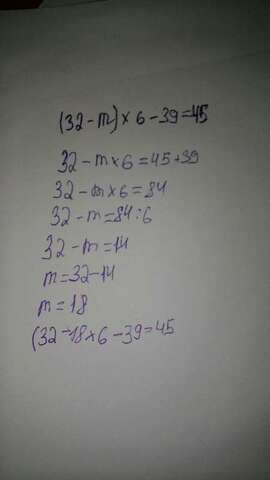 (32-m)×6-39=45
32-m×6=45+39
32-m×6=84
32-m=84:6
32-m=14
m=32-14
m=18
(32-18×6-39=45